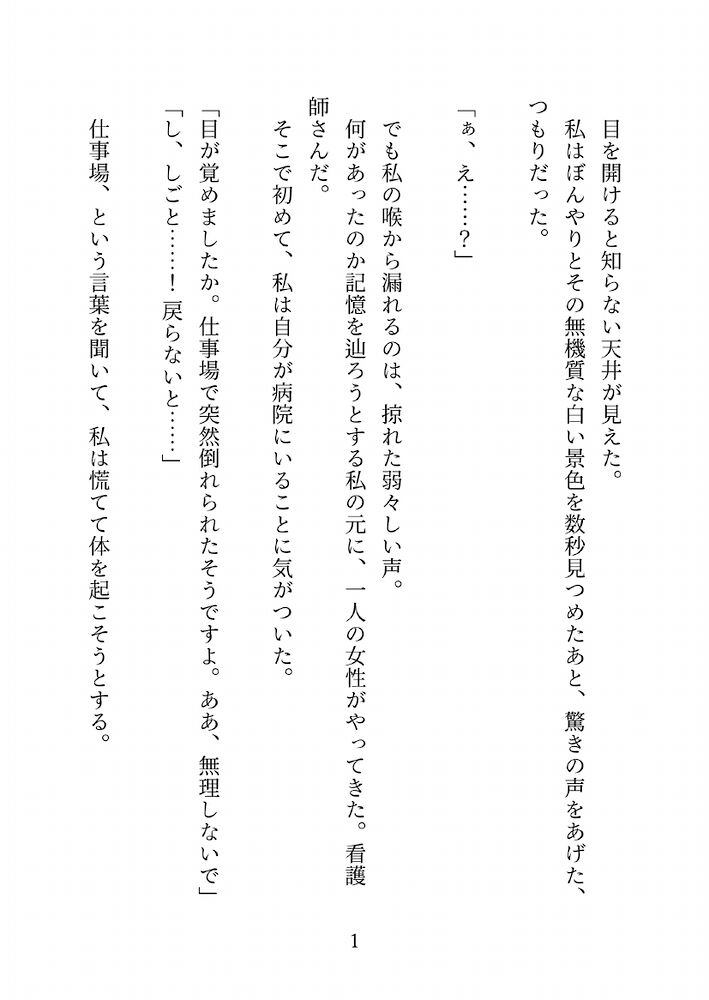 目を開けると知らない天井が見えた。
　私はぼんやりとその無機質な白い景色を数秒見つめたあと、驚きの声をあげた、
つもりだった。
「ぁ、え……？」
　でも私の喉から漏れるのは、掠れた弱々しい声。
　何があったのか記憶を辿ろうとする私の元に、一人の女性がやってきた。看護
師さんだ。
　そこで初めて、私は自分が病院にいることに気がついた。
「目が覚めましたか。仕事場で突然倒れられたそうですよ。ああ、無理しないで」
「し、しごと……！戻らないと……」
　仕事場、という言葉を聞いて、私は慌てて体を起こそうとする。
1